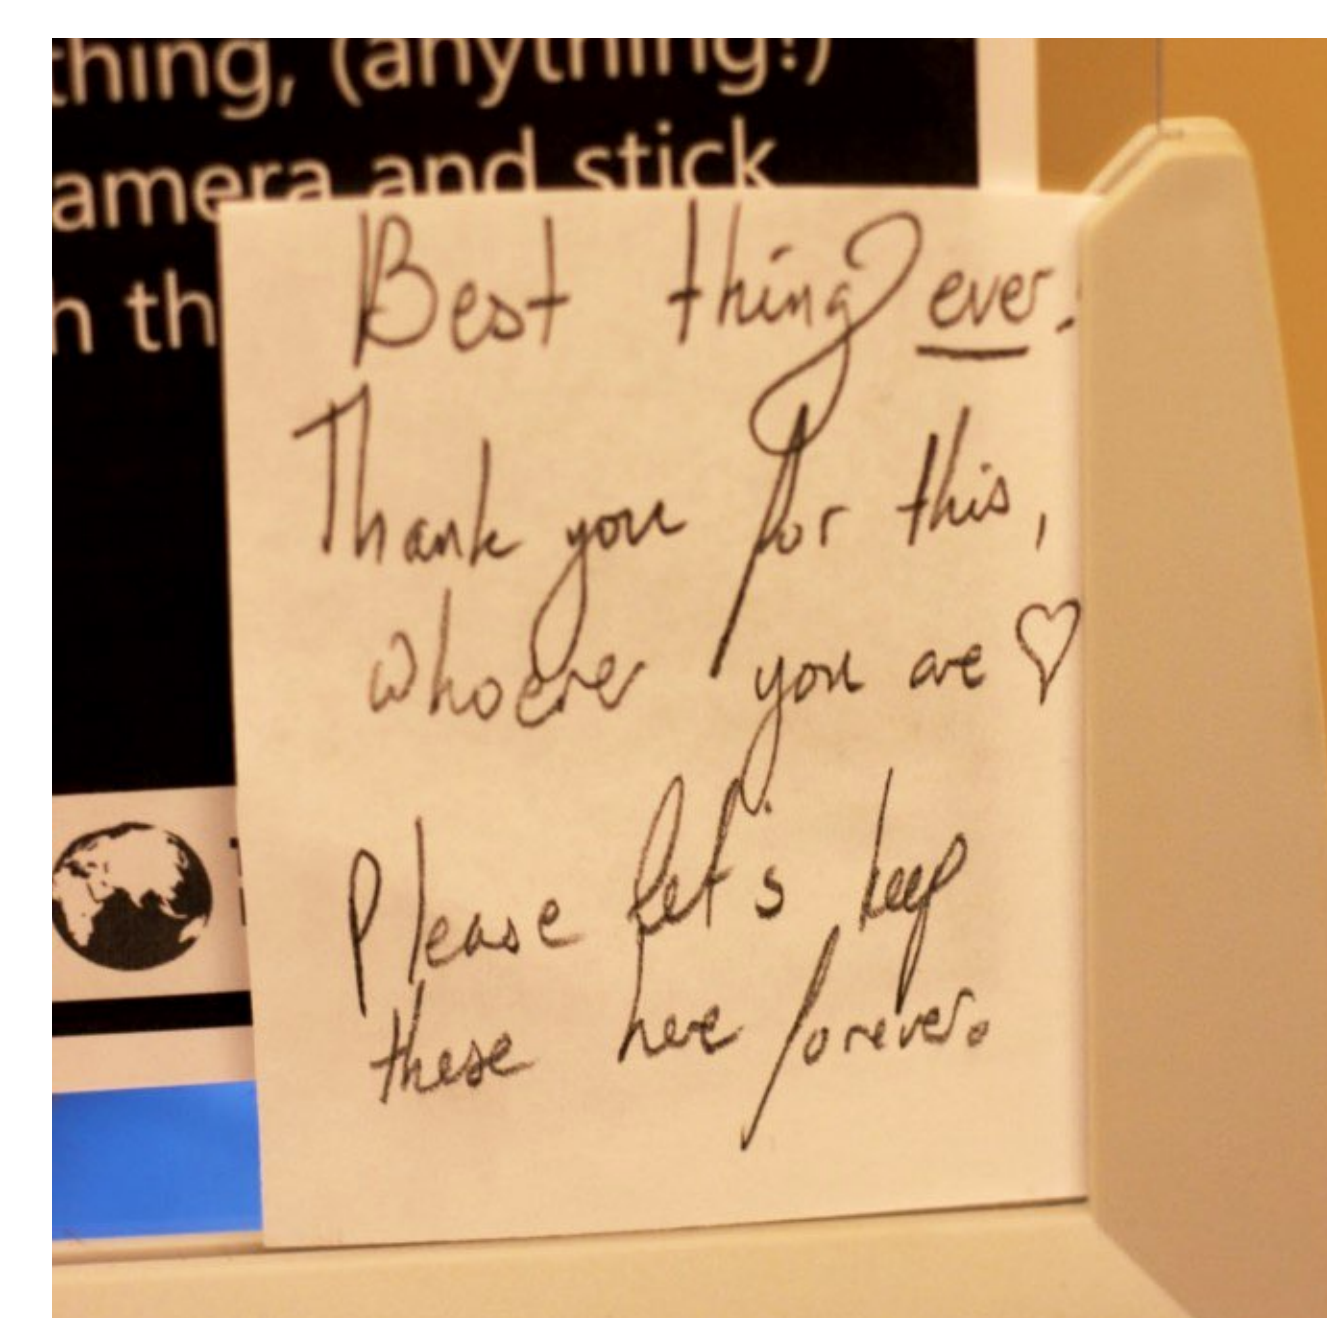 thing, (anything!)
amera and stick
n th
Best thing ever!
Thank you for this,
whoever you are ♡
Please let's keep
these here forever.